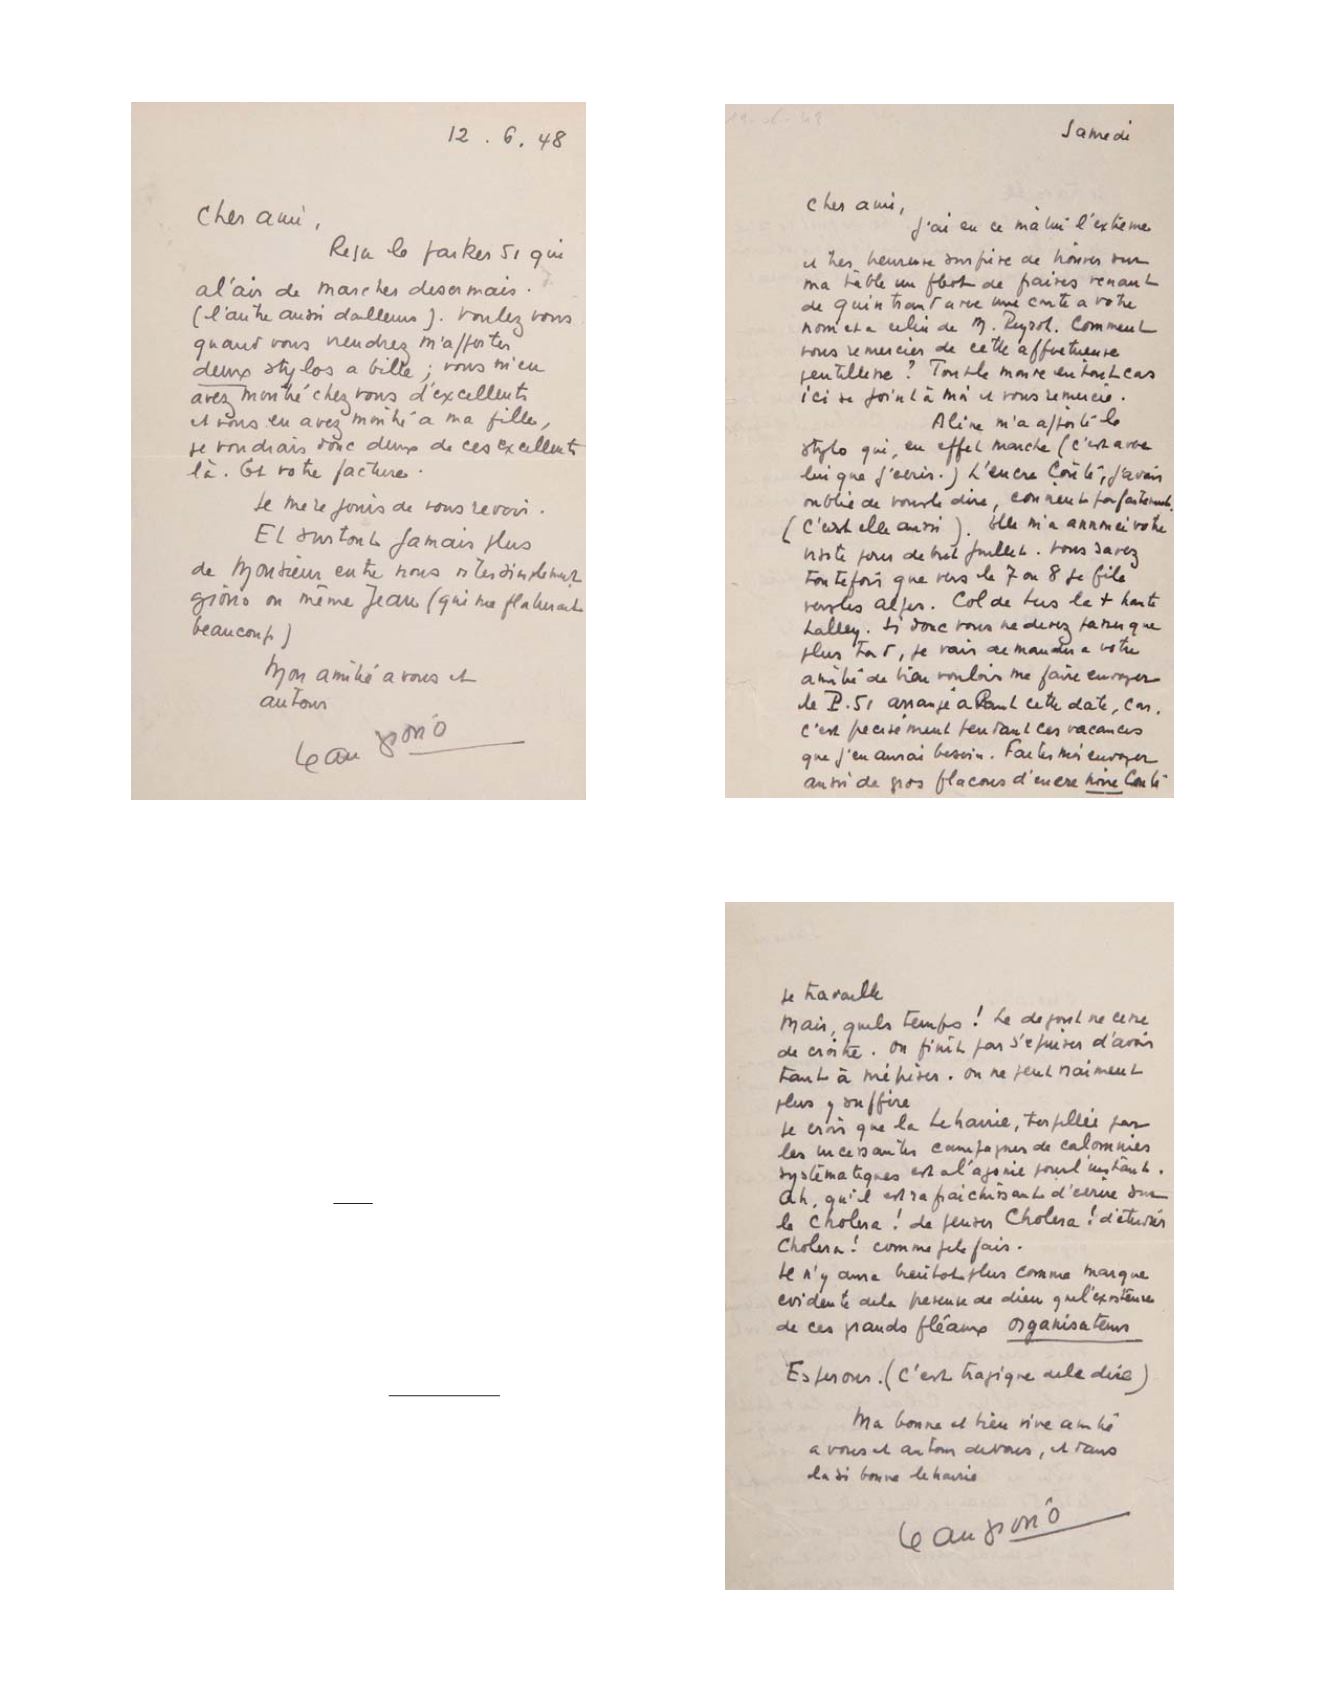 12 . 6 . 48
Cher ami,
Reçu le parker 51 qui
a l'air de marcher desormais.
(l'autre aussi dailleurs). Voulez vous
quand vous viendrez m'apporter
deux stylos a bille ; vous m'en
avez montré chez vous d'excellents
et vous en avez montré a ma fille,
je voudrais donc deux de ces excellents
là. Et votre facture.
Je me rejouis de vous revoir.
Et surtout jamais plus
de Monsieur entre nous dites simplement
giono ou même Jean (qui me flatterait
beaucoup)
Mon amitié a vous et
autour
Jean giono
19-6-48
Samedi
Cher ami,
J'ai eu ce matin l'extreme
et tres heureuse surprise de trouver sur
ma table un flot de fraises venant
de quintrand avec une carte a votre
nom et a celui de M. Peyrol. Comment
vous remercier de cette affectueuse
gentillesse ? Tout le monde en tout cas
ici se joint à moi et vous remercie.
Aline m'a apporté le
stylo qui, en effet marche (c'est avec
lui que j'ecris.) L'encre Conté, j'avais
oublié de vous le dire, convient parfaitement.
(C'est elle aussi). Elle m'a annoncé votre
visite pour debut juillet. Vous savez
toutefois que vers le 7 ou 8 je file
vers les alpes. Col de Lus la + haute
Lalley. Si donc vous ne devez passer que
plus tard, je vais demander a votre
amitié de bien vouloir me faire envoyer
le P. 51 arrangé avant cette date, car.
c'est precisément pendant ces vacances
que j'en aurai besoin. Faites moi envoyer
aussi de gros flacons d'encre noire Conté
Je travaille
Mais, quels temps ! Le degout ne cesse
de croitre. On finit par s'epuiser d'avoir
tant à mépriser. On ne peut vraiment
plus y suffire
Je crois que la Librairie, torpillée par
les incessantes campagnes de calomnies
systèmatiques est a l'agonie pour l'instant.
Ah, qu'il est rafraichissant d'ecrire sur
le Cholera ! de penser Cholera ! d'étudier
Cholera ! comme je le fais.
Il n'y aura bientot plus comme marque
evidente de la presence de dieu que l'existence
de ces grands fléaux organisateurs
Esperons. (C'est tragique de le dire)
Ma bonne et bien vive amitié
a vous et autour de vous, et dans
la si bonne librairie
Jean giono